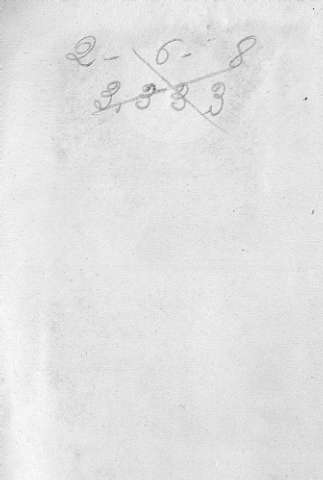 2 - 6 - 8
3, 3 3 3